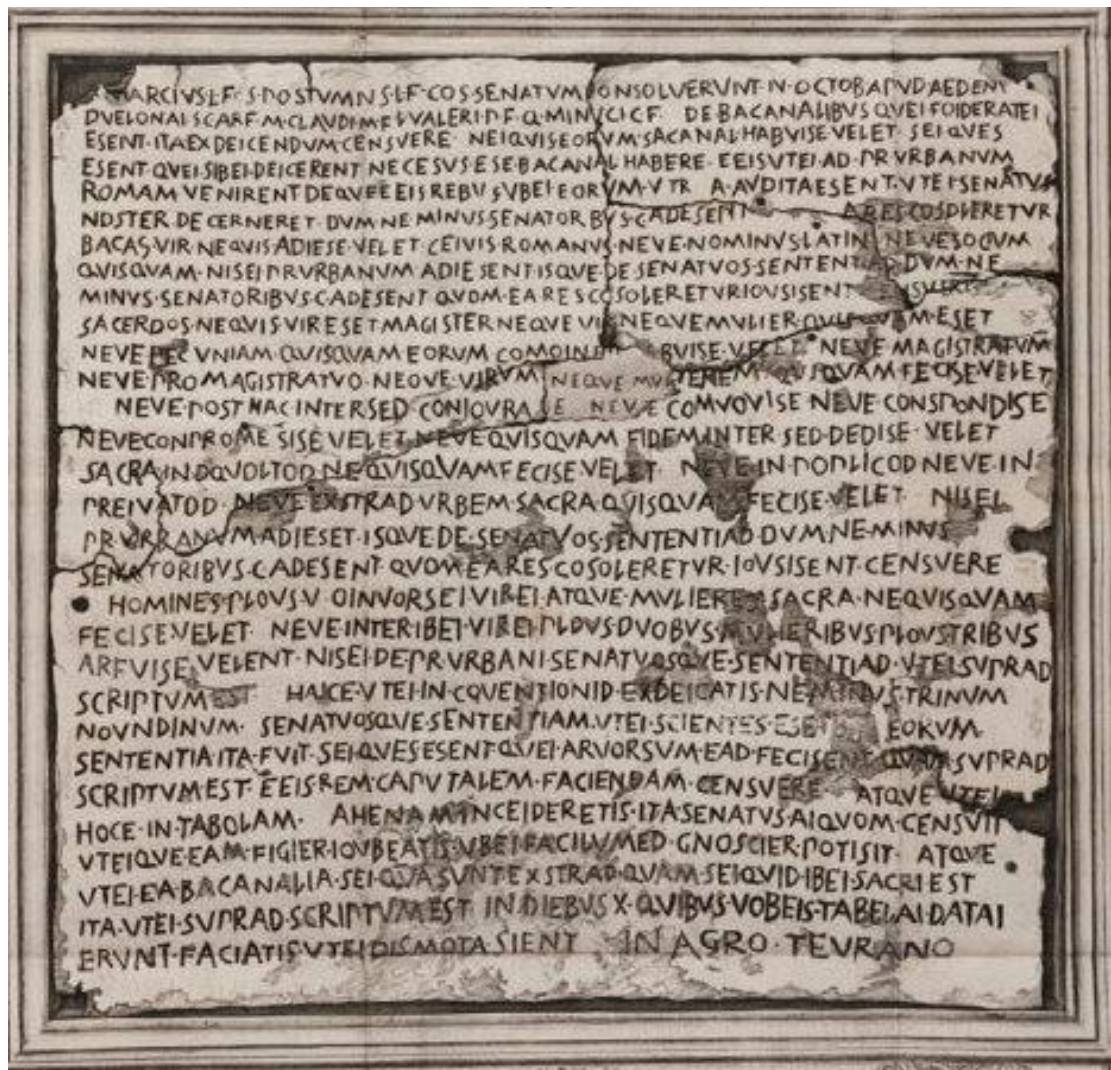 MARCIVS·L·F· S·POSTVMIVS·L·F·COS·SENATVM CONSOLVERVNT·N·OCTOB·APVD AEDEM
DVELONAI SC ARF·M·CLAVDI M·F L VALERI P·F Q·MINVCI C F· DE BACANALIBVS QVEI FOIDERATEI
ESENT·ITA EXDEICENDVM CENSVERE· NEIQVIS EORVM SACANAL HABVISE VELET· SEI QVES
ESENT QVEI SIBEI DEICERENT NECESVS ESE BACANAL HABERE· EEIS VTEI AD PR VRBANVM
ROMAM VENIRENT DEQVE EEIS REBVS VBEI EORVM VTR A AVDITA ESENT·VTEI SENATVS
NOSTER DECERNERET· DVM NE MINVS SENATORBVS·C ADESENT ARES COSOLERETVR
BACAS·VIR NEQVIS ADIESE VELET CEIVIS ROMANVS·NEVE NOMINVS LATINI NEVE SOCIVM
QVISQVAM·NISEI PR VRBANVM ADIESENT ISQVE DE SENATVOS·SENTENTIAD DVM·NE
MINVS·SENATORIBVS·C ADESENT QVOM·EA RES COSOLERETVR IOVSISENT CENSVERE
SACERDOS·NEQVIS·VIR ESET MAGISTER NEQVE VIR NEQVE MVLIER QVISQVAM ESET
NEVE PECVNIAM·QVISQVAM EORVM COMOINE BVISE·VELET· NEVE MAGISTRATVM
NEVE PRO MAGISTRATVO·NEQVE VIRVM NEQVE MVLIEREM QVISQVAM FECISE VELET
NEVE·POST HAC INTER SED CONIOVRASE NEVE COMVOVISE NEVE CONSPONDISE
NEVE CONPROMESISE VELET NEVE QVISQVAM FIDEM INTER SED·DEDISE· VELET
SACRA IN DQVOLTOD NE QVISQVAM FECISE VELET· NEVE IN POPLICOD NEVE·IN
PREIVATOD NEVE EXSTRAD VRBEM SACRA QVISQVAM FECISE·VELET· NISEI
PR VRBANVM ADIESET·ISQVE DE·SENATVOS·SENTENTIAD DVM·NE·MINVS
SENATORIBVS·C ADESENT QVOM EA RES COSOLERETVR·IOVSISENT CENSVERE
HOMINES·PLOVS·V OINVORSEI VIREI ATQVE·MVLIERES SACRA·NEQVISQVAM
FECISE VELET· NEVE INTER IBEI VIREI PLOVS·DVOBVS MVLIERIBVS PLOVS TRIBVS
ARFVISE VELENT·NISEI·DE·PR·VRBANI·SENATVOSQVE·SENTENTIAD·VTEI SVPRAD
SCRIPTVM EST HAICE·VTEI·IN COVENTIONID·EXDEICATIS·NE MINVS TRINVM
NOVNDINVM· SENATVOSQVE·SENTENTIAM·VTEI·SCIENTES·ESETIS EORVM
SENTENTIA ITA·FVIT·SEI QVES ESENT QVEI·ARVORSVM EAD FECISENT QVAM SVPRAD
SCRIPTVM EST·EEIS REM·CAPVTALEM·FACIENDAM·CENSVERE· ATQVE VTEI
HOCE·IN·TABOLAM· AHENAM INCEIDERETIS·ITA SENATVS·AIQVOM·CENSVIT
VTEIQVE·EAM·FIGIER·IOVBEATIS·VBEI FACILVMED GNOSCIER·POTISIT· ATQVE
VTEI·EA BACANALIA·SEI QVA SVNT EXSTRAD·QVAM·SEIQVID·IBEI·SACRI EST
ITA·VTEI·SVPRAD·SCRIPTVM EST IN DIEBVS X·QVIBVS·VOBEIS·TABELAI·DATAI
ERVNT·FACIATIS·VTEI DISMOTA SIENT IN AGRO·TEVRANO